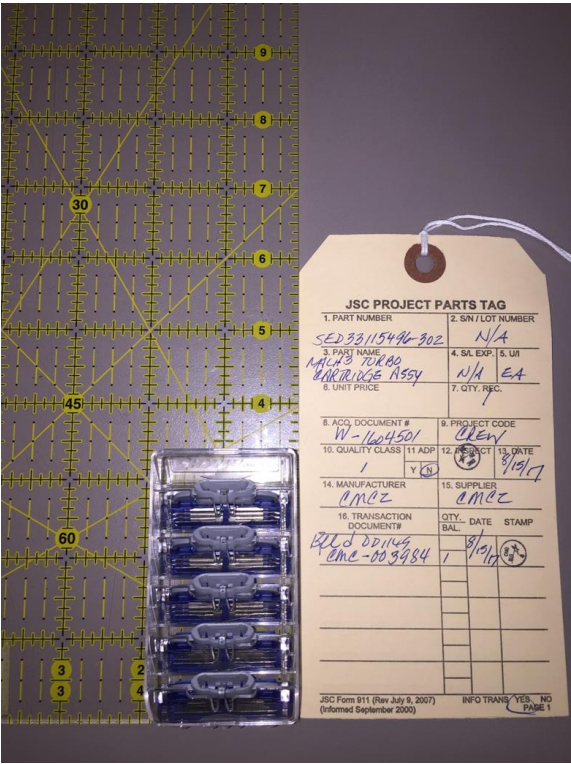 9
8
7
30
6
5
45
4
60
3
3
2
4
JSC PROJECT PARTS TAG
1. PART NUMBER
SED33115496-302
2. S/N / LOT NUMBER
N/A
3. PART NAME
MACH 3 TURBO
CARTRIDGE ASSY
4. S/L EXP.
N/A
5. U/I
EA
6. UNIT PRICE
7. QTY. REC.
1
8. ACQ. DOCUMENT #
W-1604501
9. PROJECT CODE
CREW
10. QUALITY CLASS
1
11 ADP
Y N
12. INSPECT
13. DATE
8/15/17
14. MANUFACTURER
CMC2
15. SUPPLIER
CMC2
16. TRANSACTION
DOCUMENT#
QTY.
BAL.
DATE
STAMP
DD1149
CMC-003984
1
8/15/17
JSC Form 911 (Rev July 9, 2007)
(Informed September 2000)
INFO TRANS YES NO
PAGE 1